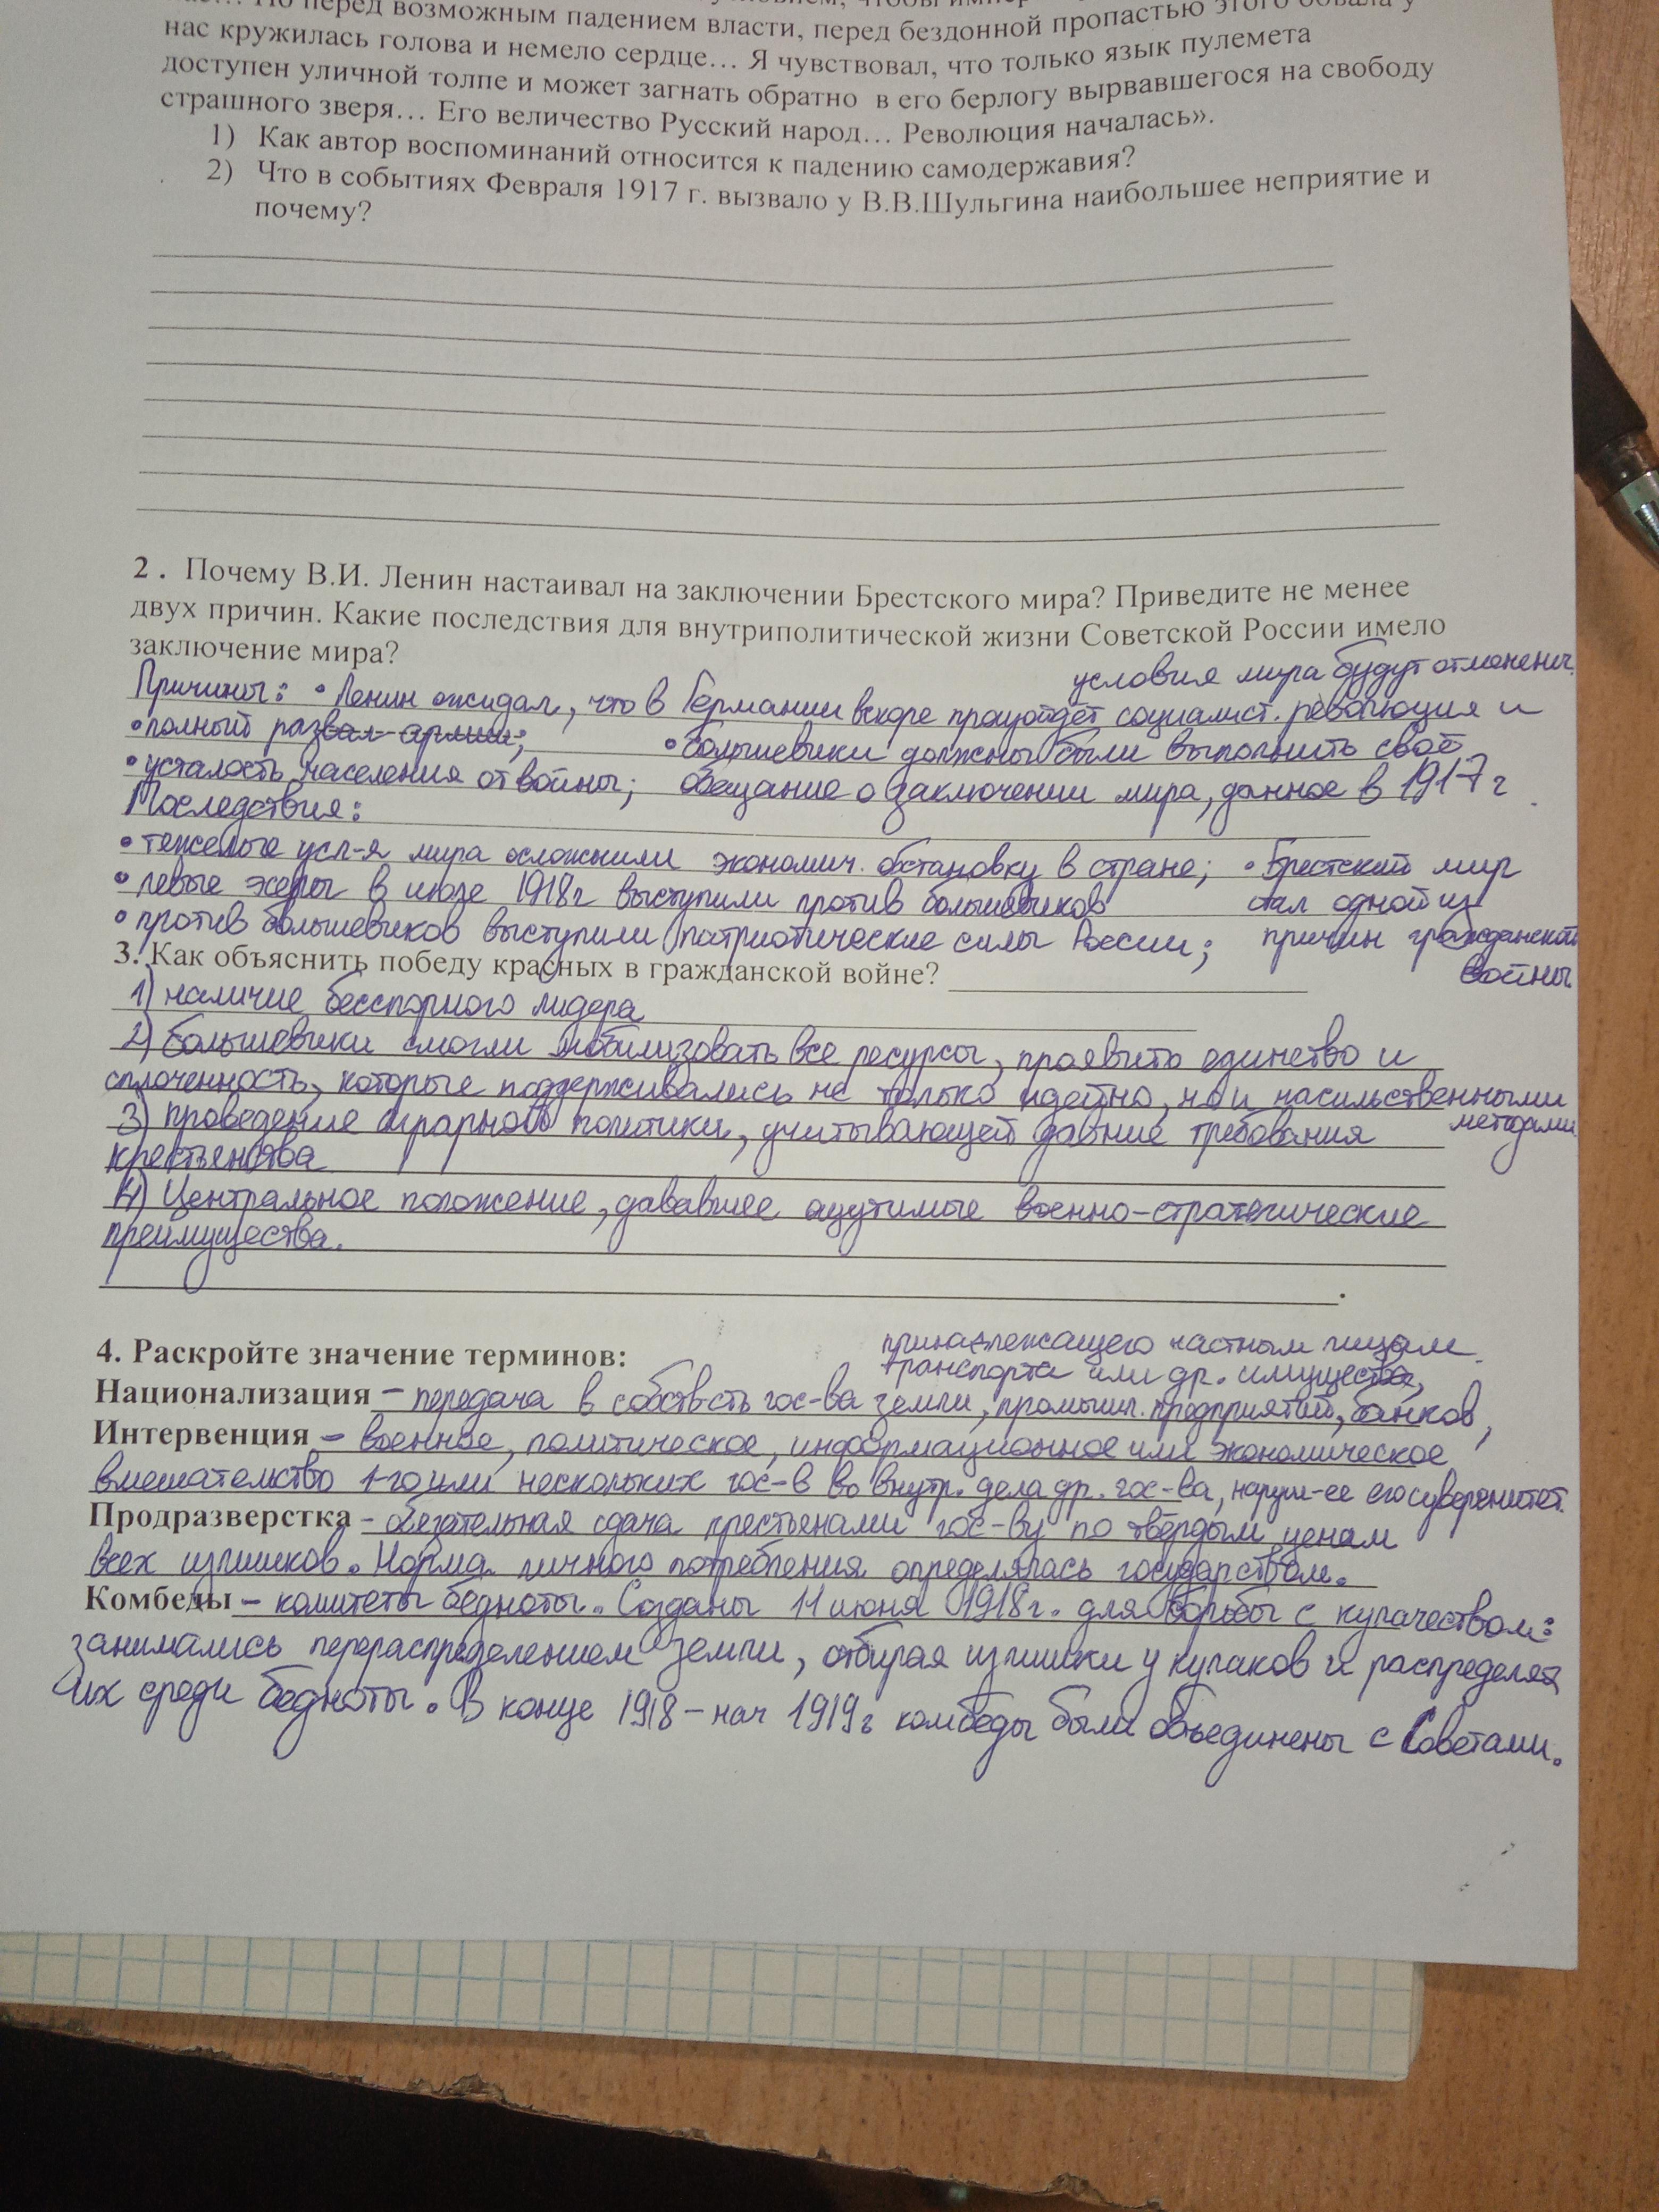 перед возможным падением власти, перед бездонной пропастью этого обвала у
нас кружилась голова и немело сердце… Я чувствовал, что только язык пулемета
доступен уличной толпе и может загнать обратно в его берлогу вырвавшегося на свободу
страшного зверя… Его величество Русский народ… Революция началась».
1) Как автор воспоминаний относится к падению самодержавия?
2) Что в событиях Февраля 1917 г. вызвало у В.В.Шульгина наибольшее неприятие и
почему?
2 . Почему В.И. Ленин настаивал на заключении Брестского мира? Приведите не менее
двух причин. Какие последствия для внутриполитической жизни Советской России имело
заключение мира?
условия мира будут отменены.
Причины: • Ленин ожидал, что в Германии вскоре произойдёт социалист. революция и
• полный развал армии; • большевики должны были выполнить своё
• усталость населения от войны; обещание о заключении мира, данное в 1917 г
Последствия:
• тяжелые усл-я мира осложнили экономич. обстановку в стране; • Брестский мир
• левые эсеры в июле 1918г выступили против большевиков стал одной из
• против большевиков выступили патриотические силы России; причин гражданской
войны.
3. Как объяснить победу красных в гражданской войне?
1) наличие бесспорного лидера
2) большевики смогли мобилизовать все ресурсы, проявить единство и
сплоченность, которые поддерживались не только идейно, но и насильственными
методами.
3) проведение аграрной политики, учитывающей давние требования
крестьянства
4) Центральное положение, дававшее ощутимые военно-стратегические
преимущества.
4. Раскройте значение терминов:
принадлежащего частным лицам.
транспорта или др. имущества,
Национализация – передача в собств-сть гос-ва земли, промышл. предприятий, банков,
Интервенция – военное, политическое, информационное или экономическое
вмешательство 1-го или нескольких гос-в во внутр. дела др. гос-ва, наруш-ее его суверенитет.
Продразверстка – обязательная сдача крестьянами гос-ву по твёрдым ценам
всех излишков. Норма личного потребления определялась государством.
Комбеды – комитеты бедноты. Созданы 11 июня 1918г. для борьбы с кулачеством:
занимались перераспределением земли, отбирая излишки у кулаков и распределяя
их среди бедноты. В конце 1918 – нач 1919г комбеды были объединены с Советами.